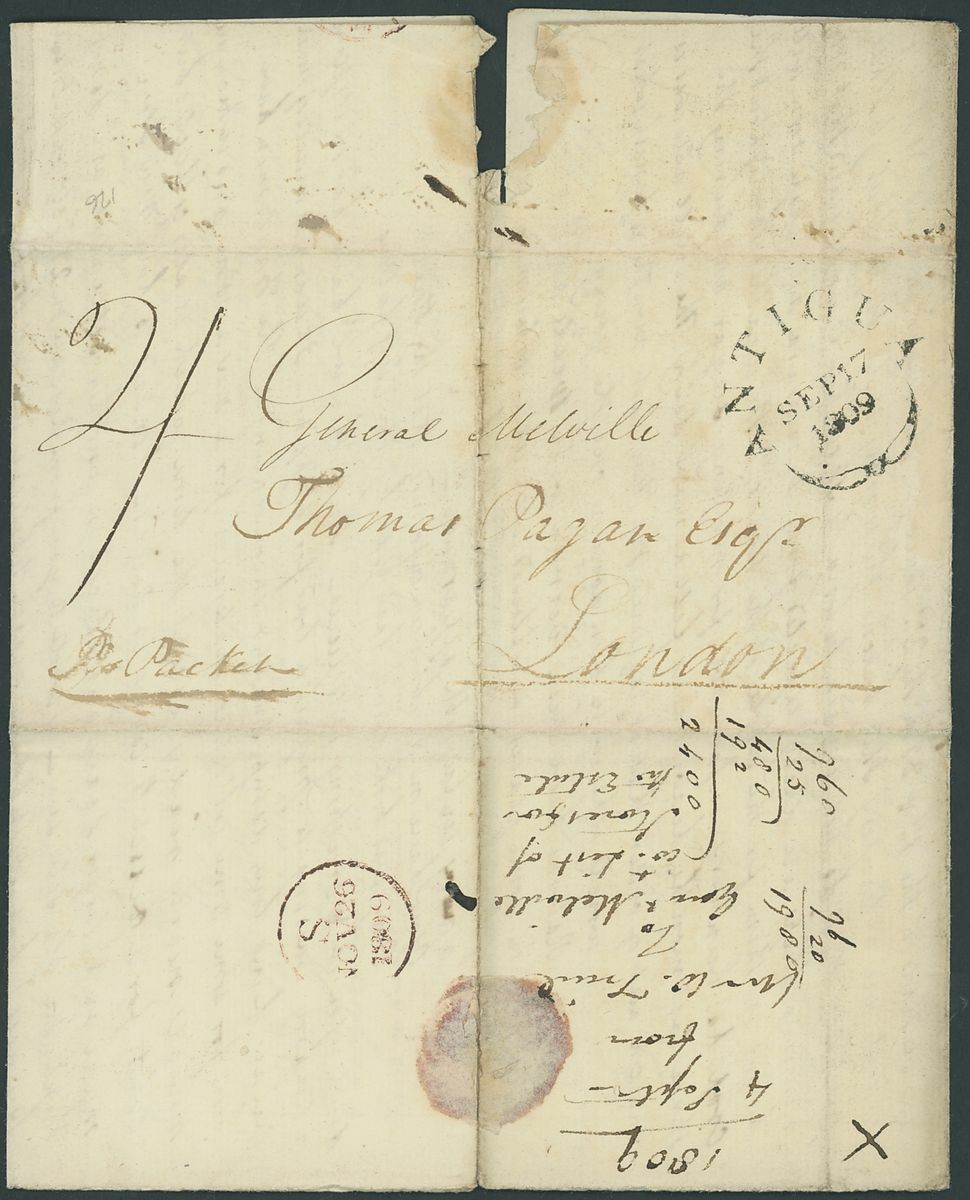 126
2/
ANTIGUA
SEP 17
1809
General Melville
Thomas Pagan Esqr
London
Pr Packet
S
NOV 26
1809
960
125
480
192
2400
96
20
1980
1809
4 Septr
from
Mr W.
To
Genl Melville
wt. List of
Stores for
his Estate
X